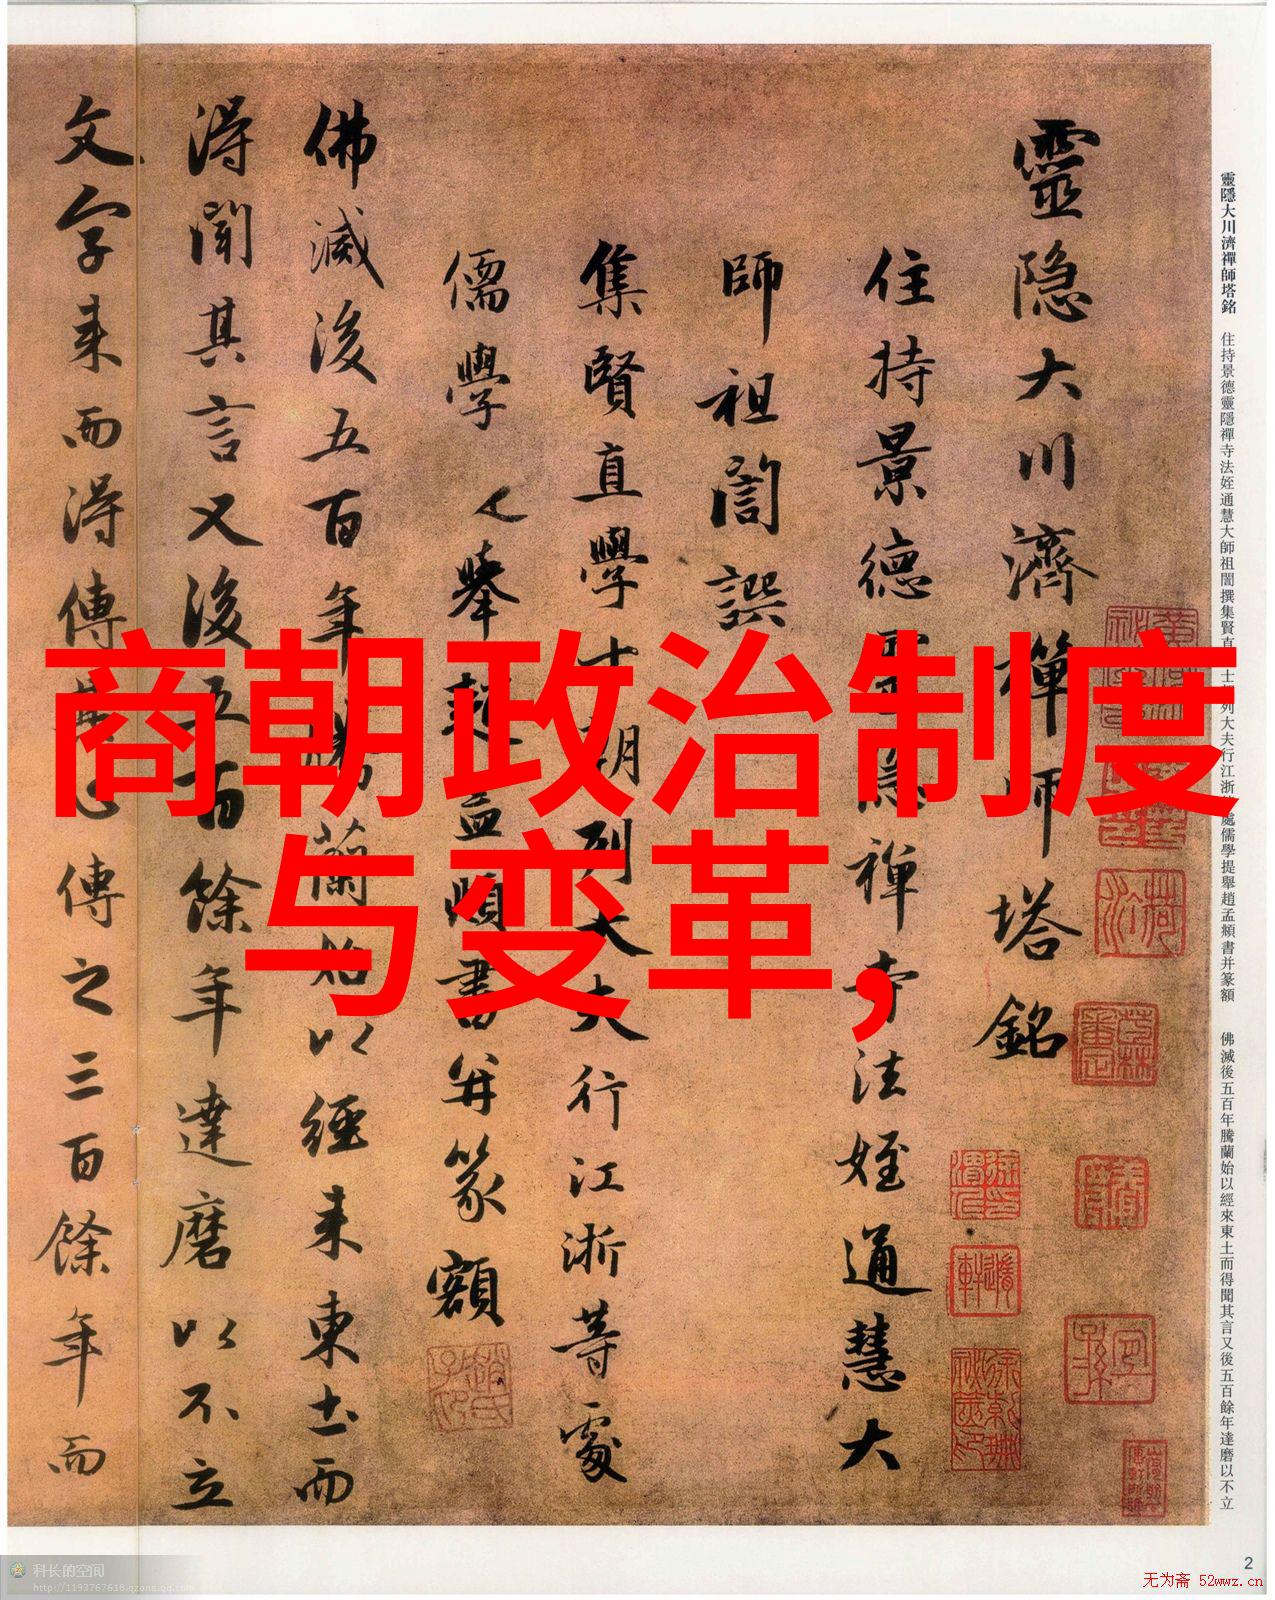 商朝政治制度
与变革,
靈隱大川濟禪師塔銘 住持景德靈隱禪寺法姪通慧大師祖誾撰集賢直士朝列大夫行江浙處儒學提舉趙孟頫書并篆額 佛滅後五百年騰蘭始以經來東土而得聞其言又後五百餘年達磨以不立
靈隐大川濟禪師塔銘
住持景德靈隱禪寺法姪通慧大
師祖誾譔
集賢直學士朝列大夫行江浙等處
儒學提舉趙孟頫書并篆額
佛滅後五百年騰蘭始以經来東土而
得聞其言又後五百餘年達磨以不立
文字来而得傳其心傳之三百餘年而
2
科长的空间
http://1193767618.qzone.qq.com
无为斋 52wwz.cn